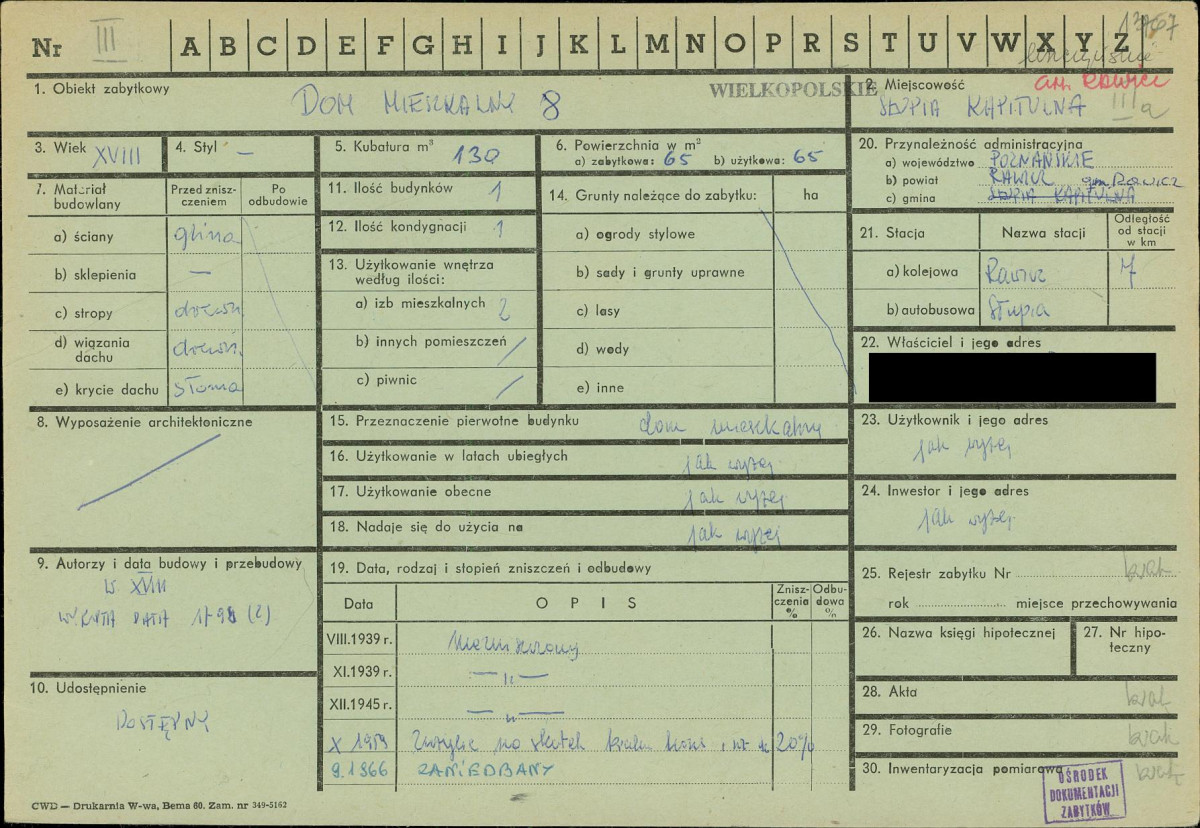 Nr III A B C D E F G H I J K L M N O P R S T U V W X Y Z
1. Obiekt zabytkowy
DOM MIESZKALNY 8
WIELKOPOLSKIE
2. Miejscowość
SŁUPIA KAPITULNA
IIIa
3. Wiek XVIII
4. Styl —
5. Kubatura m³ 130
6. Powierzchnia w m³
a) zabytkowa: 65 b) użytkowa: 65
20. Przynależność administracyjna
a) województwo POZNAŃSKIE
b) powiat RAWICZ gm. Rawicz
c) gmina SŁUPIA KAPITULNA
7. Materiał budowlany
Przed zniszczeniem
Po odbudowie
a) ściany glina
b) sklepienia —
c) stropy drewn.
d) wiązania dachu drewn.
e) krycie dachu słoma
11. Ilość budynków 1
12. Ilość kondygnacji 1
13. Użytkowanie wnętrza
według ilości:
a) izb mieszkalnych 2
b) innych pomieszczeń /
c) piwnic /
14. Grunty należące do zabytku: ha
a) ogrody stylowe
b) sady i grunty uprawne
c) lasy
d) wody
e) inne
21. Stacja Nazwa stacji Odległość od stacji w km
a) kolejowa Rawicz 7
b) autobusowa Słupia
22. Właściciel i jego adres
8. Wyposażenie architektoniczne
15. Przeznaczenie pierwotne budynku dom mieszkalny
16. Użytkowanie w latach ubiegłych jak wyżej
17. Użytkowanie obecne jak wyżej
18. Nadaje się do użycia na jak wyżej
23. Użytkownik i jego adres
jak wyżej
24. Inwestor i jego adres
jak wyżej
9. Autorzy i data budowy i przebudowy
w. XVIII
WYRYTA DATA 1798 (?)
10. Udostępnienie
DOSTĘPNY
19. Data, rodzaj i stopień zniszczeń i odbudowy
Data OPIS Zniszczenia % Odbudowa %
VIII.1939 r. Niezniszczony
XI.1939 r. — " —
XII.1945 r. — " —
X 1959 Zużycie na skutek braku kons. 20%
9.1966 ZANIEDBANY
25. Rejestr zabytku Nr brak
rok miejsce przechowywania
26. Nazwa księgi hipotecznej
27. Nr hipoteczny
28. Akta brak
29. Fotografie brak
30. Inwentaryzacja pomiarowa brak
OŚRODEK
DOKUMENTACJI
ZABYTKÓW
CWD — Drukarnia W-wa, Bema 60. Zam. nr 349-5162